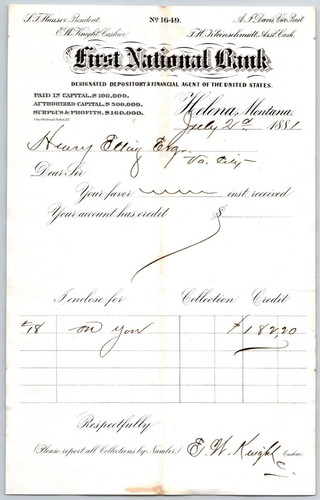 S.T. Hauser President. No 1649. A.J. Davis Vice Prest.
E.W. Knight Cashier T.H. Kleinschmidt Asst. Cash.
THE First National Bank
DESIGNATED DEPOSITORY & FINANCIAL AGENT OF THE UNITED STATES.
PAID IN CAPITAL, $100,000.
AUTHORIZED CAPITAL, $500,000.
SURPLUS & PROFITS, $160,000.
Helena, Montana,
July 2nd 1881
Henry Elling Esq.
Va. City
Dear Sir
Your favor inst. received
Your account has credit $
I enclose for Collection Credit
#18 on you $182.20
Respectfully
(Please report all Collections by Number) E. W. Knight Cashier
C.